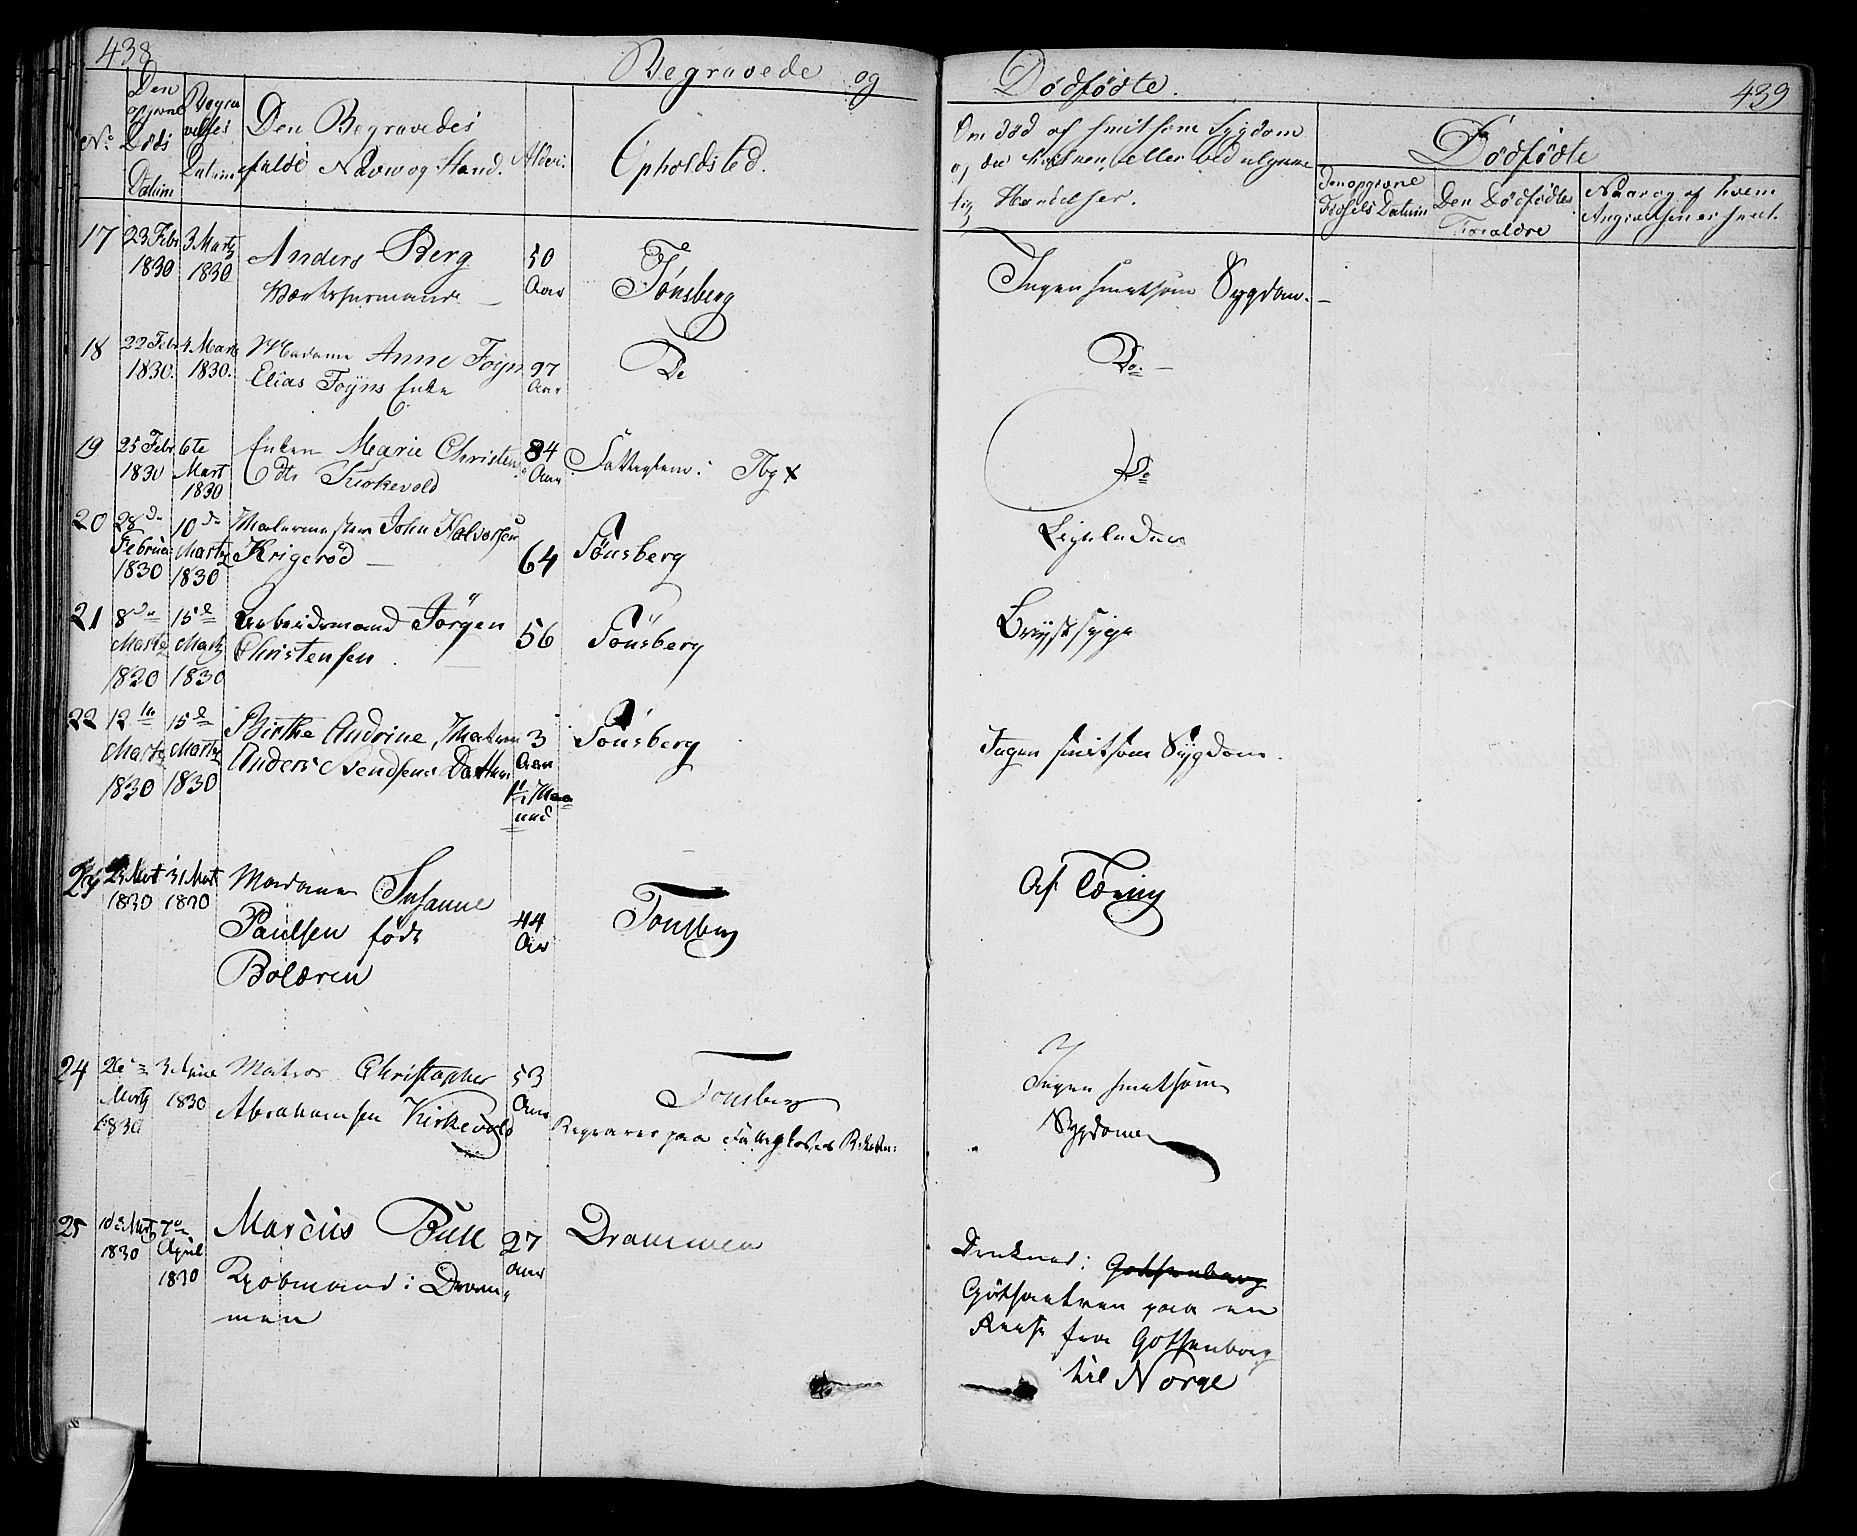 438
Begravede og
Dødfødte.
439
No.
Den opgivne Døds Datum
Begravelses Datum
Den Begravedes fulde Navn og Stand.
Alder.
Opholdsted.
Om død af smitsom Sygdom
eller ved ulykkelig
Hændelser.
Dødfødte
Den opgivne Fødsels Datum
Den Dødfødtes Forældre
Naar og af hvem Angivelsen er skeet.
17 23 Febr 1830 3 Marty 1830
Anders Berg
50 Aar
Tønsberg
Ingen smitsom Sygdom.
18 22 Febr 1830. 4 Mart 1830.
Madame Anne Foyn
Elias Foyns Enke
97 Aar
Do
Do.
19 25 Febr 1830 6te Mart 1830
Enken Marie Christens
Dtr Kirkevold
84 Aar
Tbg x
Do
20 28de Februar 1830 10de Marty 1830
John Halvorsen
Krigerød
64
Tønsberg
21 8de Marty 1820 15de Marty 1830
Arbeidsmand Jörgen
Christensen.
56
Tönsberg
Brystsyge
22 12te Marty 1830 15de Marty 1830
Birthe Andrine, Matros
Anders Svendsens Datter
3 Aar
Tönsberg
Ingen smitsom Sygdom.
23 23 Mart 1830 31 Mart 1830
Madame Susanne
Paulsen født
Bolæren
44 Aar
Tonsberg
Af Tæring
24 26de Marty 1830 3 April 1830
Matros Christopher
Abrahamsen Kirkevold
53 Aar
Tonsberg
Begraves paa Fattigkassens Bekostn:
Ingen smitsom
Sygdom
25 18de Mart 1830 7de April 1830
Marcus Bull
Kjøbmand i Dram-
men
27 Aar
Drammen
Druknet i Gothenborg
paa en
Reise fra Gothenborg
til Norge